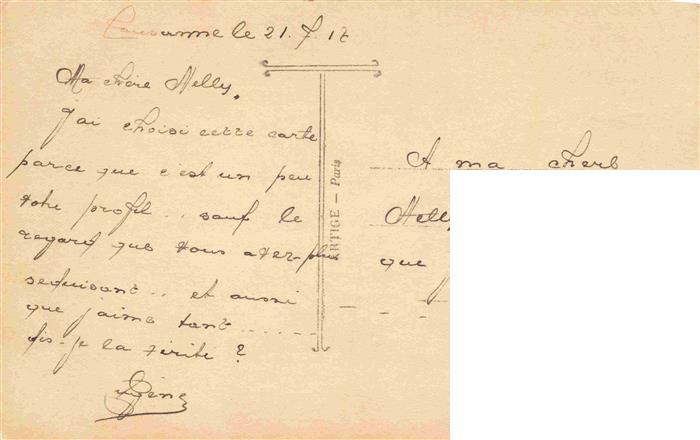 Lausanne le 21. 7. 17
Ma chère Nelly.
j'ai choisi cette carte
parce que c'est un peu
votre profil .. sauf le
regard que vous avez plus
seduisant .. et aussi
que j'aime tant ......
dis-je la vérité ?
ARTIGE - Paris
A ma chere
Nelly
que